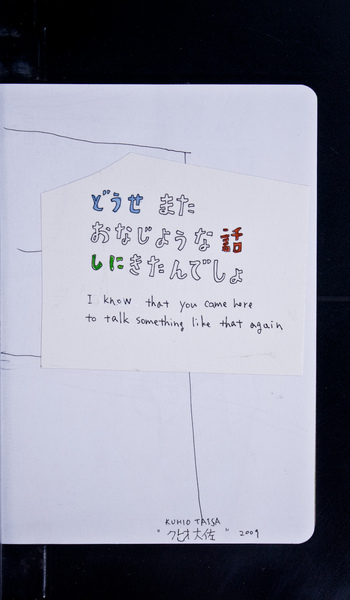 どうせ また
おなじような 話
しにきたんでしょ
I know that you came here
to talk something like that again
KUHIO TAISA
"クヒオ大佐" 2009